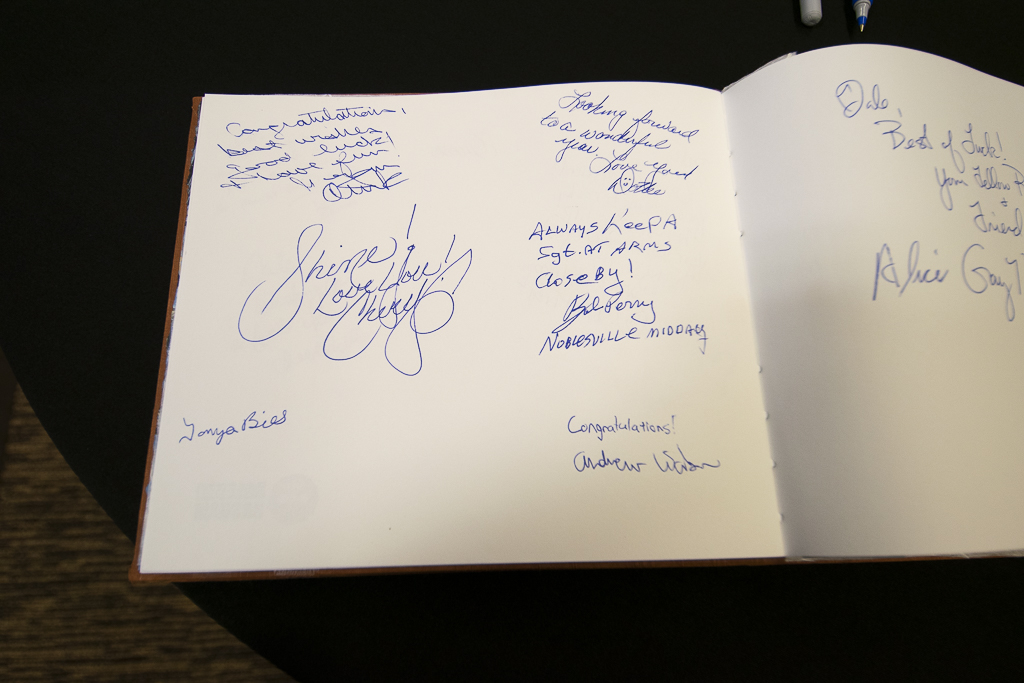 Congratulations,
best wishes
Good luck!
& have fun!
Looking forward
to a wonderful
year.
Love you!
Shine!
Love You!
Cheryl!
ALWAYS KeeP A
Sgt. AT ARMS
Close BY!
Bil Perry
NOBLESVILLE MIDDAY
Tonya Bies
Congratulations!
Andrew
Dale,
Best of Luck!
Your Fellow
&
Friend
Alice Gay